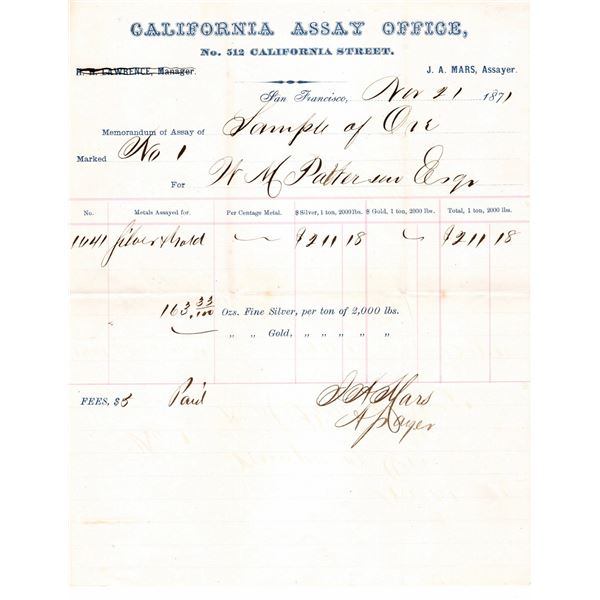 CALIFORNIA ASSAY OFFICE,
No. 512 CALIFORNIA STREET.
H. H. LAWRENCE, Manager. J. A. MARS, Assayer.
San Francisco, Nov 21 1871
Memorandum of Assay of Sample of Ore
Marked No 1
For W M Patterson Esqr
No. Metals Assayed for. Per Centage Metal. $ Silver, 1 ton, 2000 lbs. $ Gold, 1 ton, 2000 lbs. Total, 1 ton, 2000 lbs.
1041 Silver & Gold $211 18 $211 18
163 33/100 Ozs. Fine Silver, per ton of 2,000 lbs.
„ „ Gold, „ „ „ „ „
FEES, $3 Paid
J A Mars
Assayer